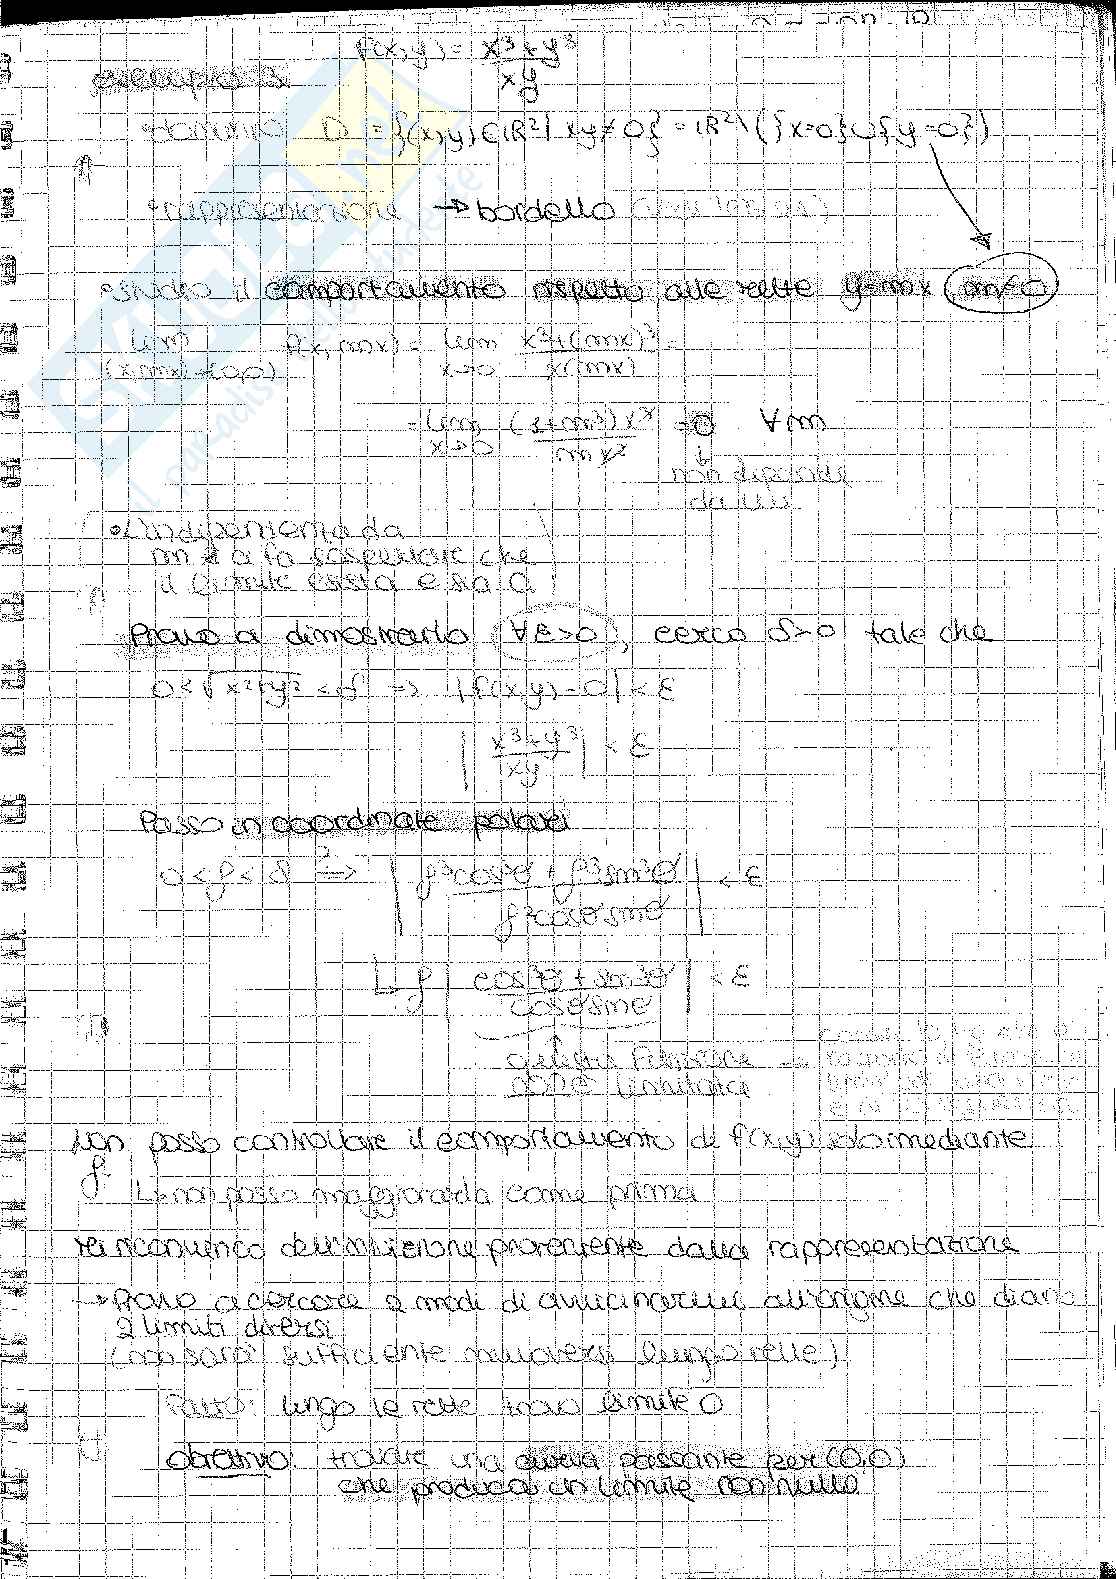 esempio 3
f(x,y) = x³+y³ / xy
• dominio D = {(x,y) ∈ ℝ² | xy ≠ 0} = ℝ² \ ({x=0} ∪ {y=0})
• rappresentazione → bordello
• studio il comportamento rispetto alle rette y=mx (m≠0)
lim (x,mx)→(0,0) f(x,mx) = lim x→0 x³+(mx)³ / x(mx) =
= lim x→0 (1+m³)x³ / mx² = 0 ∀m
non dipende
da m
• L'indipendenza da
m ci fa sospettare che
il limite esista e sia 0
Provo a dimostrarlo (∀ε>0), cerco δ>0 tale che
0 < √x²+y² < δ ⇒ |f(x,y) - 0| < ε
| x³+y³ / xy | < ε
Passo in coordinate polari
0 < ρ < δ ?⇒ | ρ³cos³θ + ρ³sin³θ / ρ²cosθsinθ | < ε
↳ ρ | cos³θ + sin³θ / cosθsinθ | < ε
questa funzione →
non è limitata
Non posso controllare il comportamento di f(x,y) solo mediante
ρ
↳ non posso maggiorarla come prima
Mi riconvinco dell'intuizione proveniente dalla rappresentazione
→ Provo a cercare 2 modi di avvicinarmi all'origine che diano
2 limiti diversi
(non sarà sufficiente muoversi lungo rette)
Fatto: lungo le rette trovo limite 0
obiettivo: trovare una curva passante per (0,0)
che produca un limite non nullo